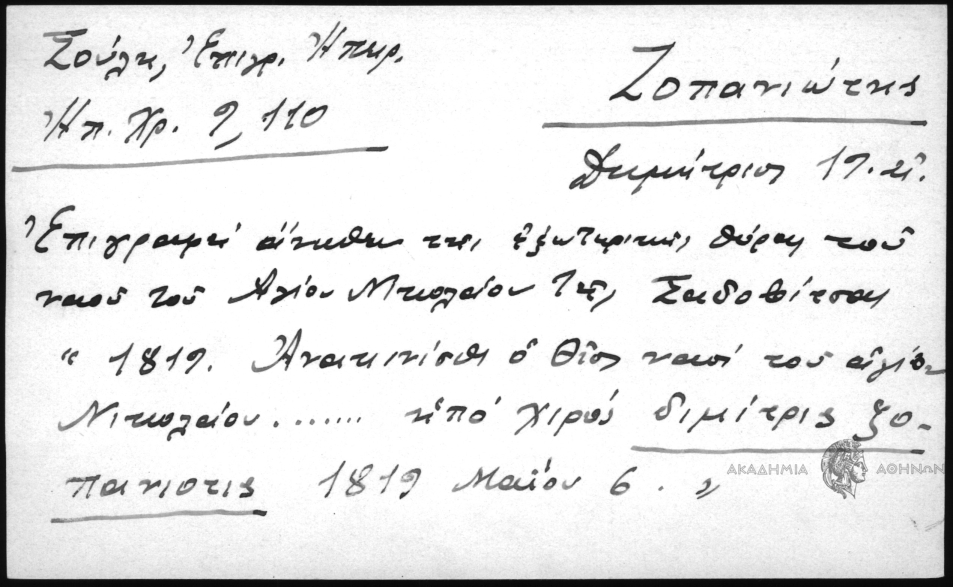 Σούλη, Ἐπιγρ. Ἠπειρ.
Ἠπ. Χρ. 9, 110
Ζοπανιώτης
Δημήτριος 19. αἰ.
Ἐπιγραφή ἄνωθεν τῆς ἐξωτερικῆς θύρας τοῦ
ναοῦ τοῦ Ἁγίου Νικολάου τῆς Σαδοβίτσας
“ 1819. Ἀνακινίσθι ὁ θῖος ναός τοῦ ἁγίου
Νικολάου ....... ἠπό χιρός διμίτρις ζο-
πανιοτις 1819 Μαΐου 6. „
ΑΚΑΔΗΜΙΑ ΑΘΗΝΩΝ